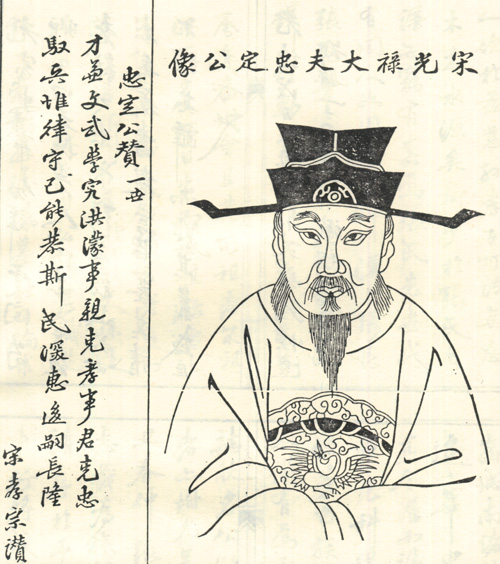 宋光祿大夫忠定公像
忠定公賛 一世
才兼文武學究洪濛事親克孝事君克忠
馭兵惟律守己能恭斯民深惠後嗣長隆
宋孝宗讚